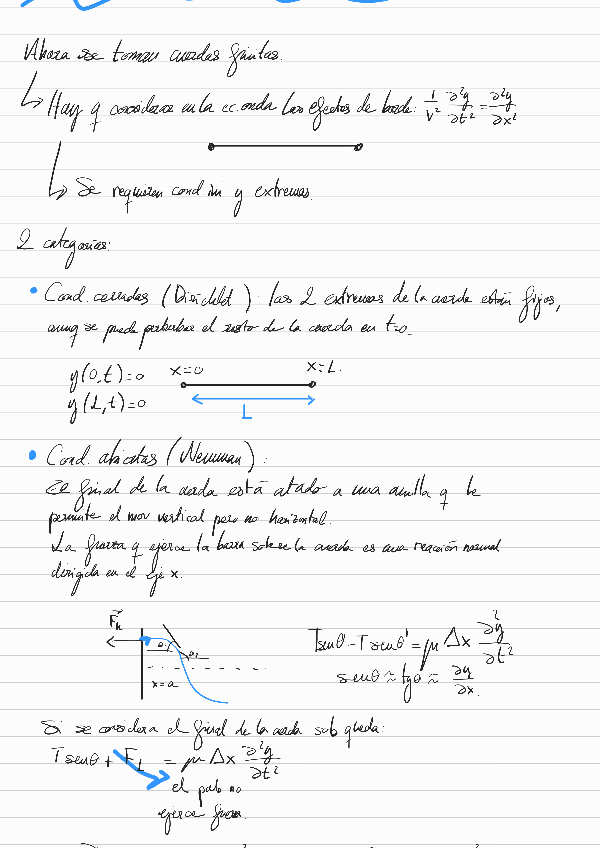 Ahora se toman cuerdas finitas.
↳ Hay q considerar en la ec. onda los efectos de borde: 1/V² ∂²y/∂t² = ∂²y/∂x²
↳ Se requieren cond ini y extremos.
2 categorías:
• Cond. cerradas (Dirichlet): los 2 extremos de la cuerda están fijos,
aunq se puede perturbar el resto de la cuerda en t=0.
y(0,t)=0 x=0 x=L.
y(L,t)=0
L
• Cond. abiertas (Neumann):
El final de la cuerda está atado a una anilla q le
permite el mov vertical pero no horizontal.
La fuerza q ejerce la barra sobre la cuerda es una reacción normal
dirigida en el eje x.
x=a
Tsenθ - Tsenθ' = μ Δx ∂²y/∂t²
senθ ≈ tgθ ≈ ∂y/∂x.
Si se considera el final de la cuerda solo queda:
Tsenθ + F⊥ = μ Δx ∂²y/∂t²
el palo no
ejerce fuerza.